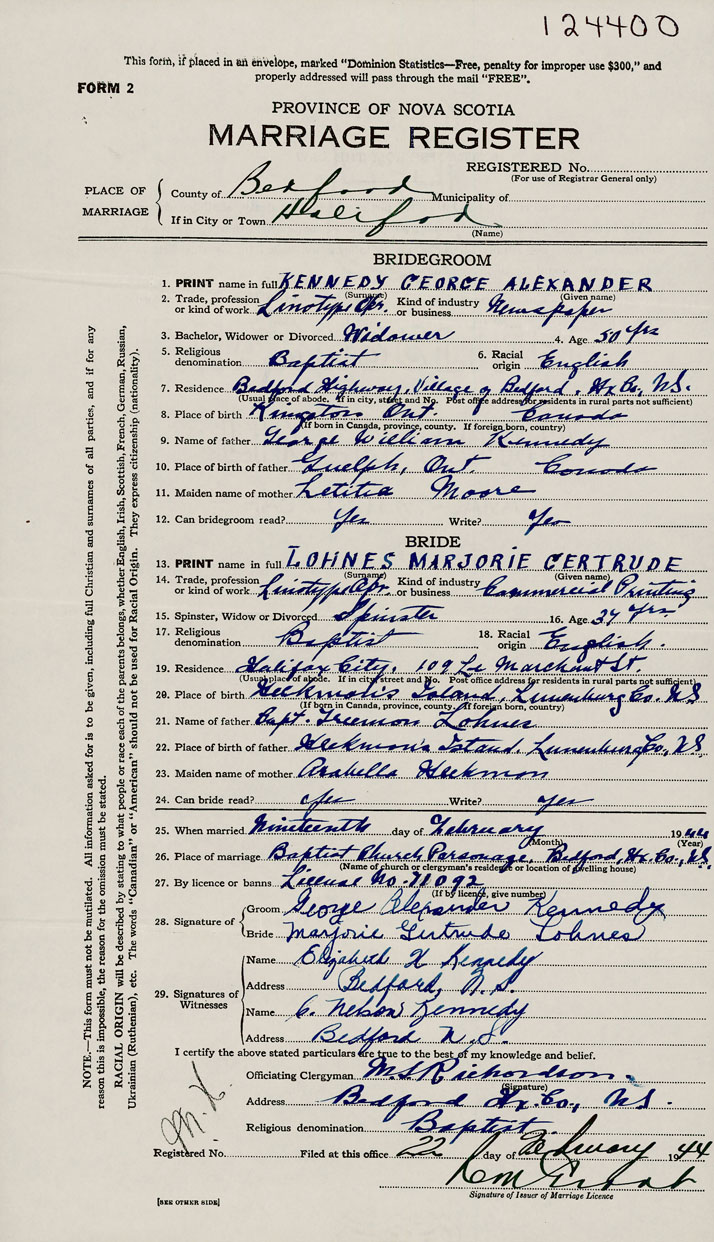 124400
This form, if placed in an envelope, marked “Dominion Statistics—Free, penalty for improper use $300,” and
properly addressed will pass through the mail “FREE”.
FORM 2
PROVINCE OF NOVA SCOTIA
MARRIAGE REGISTER
REGISTERED No.
(For use of Registrar General only)
PLACE OF MARRIAGE
County of Bedford Municipality of
If in City or Town Halifax
(Name)
BRIDEGROOM
1. PRINT name in full KENNEDY GEORGE ALEXANDER
(Surname) (Given name)
2. Trade, profession or kind of work Linotype Opr. Kind of industry or business Newspaper
3. Bachelor, Widower or Divorced Widower 4. Age 50 yrs
5. Religious denomination Baptist 6. Racial origin English
7. Residence Bedford Highway, Village of Bedford, Hx Co, N.S.
(Usual place of abode. If in city, street and No. Post office address for residents in rural parts not sufficient)
8. Place of birth Kingston Ont. Canada
(If born in Canada, province, county. If foreign born, country)
9. Name of father George William Kennedy
10. Place of birth of father Guelph, Ont. Canada
11. Maiden name of mother Letitia Moore
12. Can bridegroom read? Yes Write? Yes
BRIDE
13. PRINT name in full LOHNES MARJORIE GERTRUDE
(Surname) (Given name)
14. Trade, profession or kind of work Linotype Opr. Kind of industry or business Commercial Printing
15. Spinster, Widow or Divorced Spinster 16. Age 34 yrs.
17. Religious denomination Baptist 18. Racial origin English.
19. Residence Halifax City. 109 Le Marchant St.
(Usual place of abode. If in city street and No. Post office address for residents in rural parts not sufficient)
20. Place of birth Heckman's Island, Lunenburg Co. N.S.
(If born in Canada, province, county. If foreign born, country)
21. Name of father Capt. Freeman Lohnes
22. Place of birth of father Heckman's Island, Lunenburg Co., N.S.
23. Maiden name of mother Arabella Heckman
24. Can bride read? Yes Write? Yes
25. When married Nineteenth day of February 1944
(Month) (Year)
26. Place of marriage Baptist Church Parsonage, Bedford, Hx. Co., N.S.
(Name of church or clergyman's residence or location of dwelling house)
27. By licence or banns License No. 71092
(If by licence, give number)
28. Signature of Groom George Alexander Kennedy
Bride Marjorie Gertrude Lohnes
29. Signatures of Witnesses
Name Elizabeth H Kennedy
Address Bedford, N.S.
Name C. Nelson Kennedy
Address Bedford N.S.
I certify the above stated particulars are true to the best of my knowledge and belief.
Officiating Clergyman M.S. Richardson.
(Signature)
Address Bedford Hx. Co., N.S.
Religious denomination Baptist.
Registered No. Filed at this office 22 day of February 1944
Signature of Issuer of Marriage Licence
[SEE OTHER SIDE]
NOTE.—This form must not be mutilated. All information asked for is to be given, including full Christian and surnames of all parties, and if for any
reason this is impossible, the reason for the omission must be stated.
RACIAL ORIGIN will be described by stating to what people or race each of the parents belongs, whether English, Irish, Scottish, French, German, Russian,
Ukrainian (Ruthenian), etc. The words “Canadian” or “American” should not be used for Racial Origin. They express citizenship (nationality).